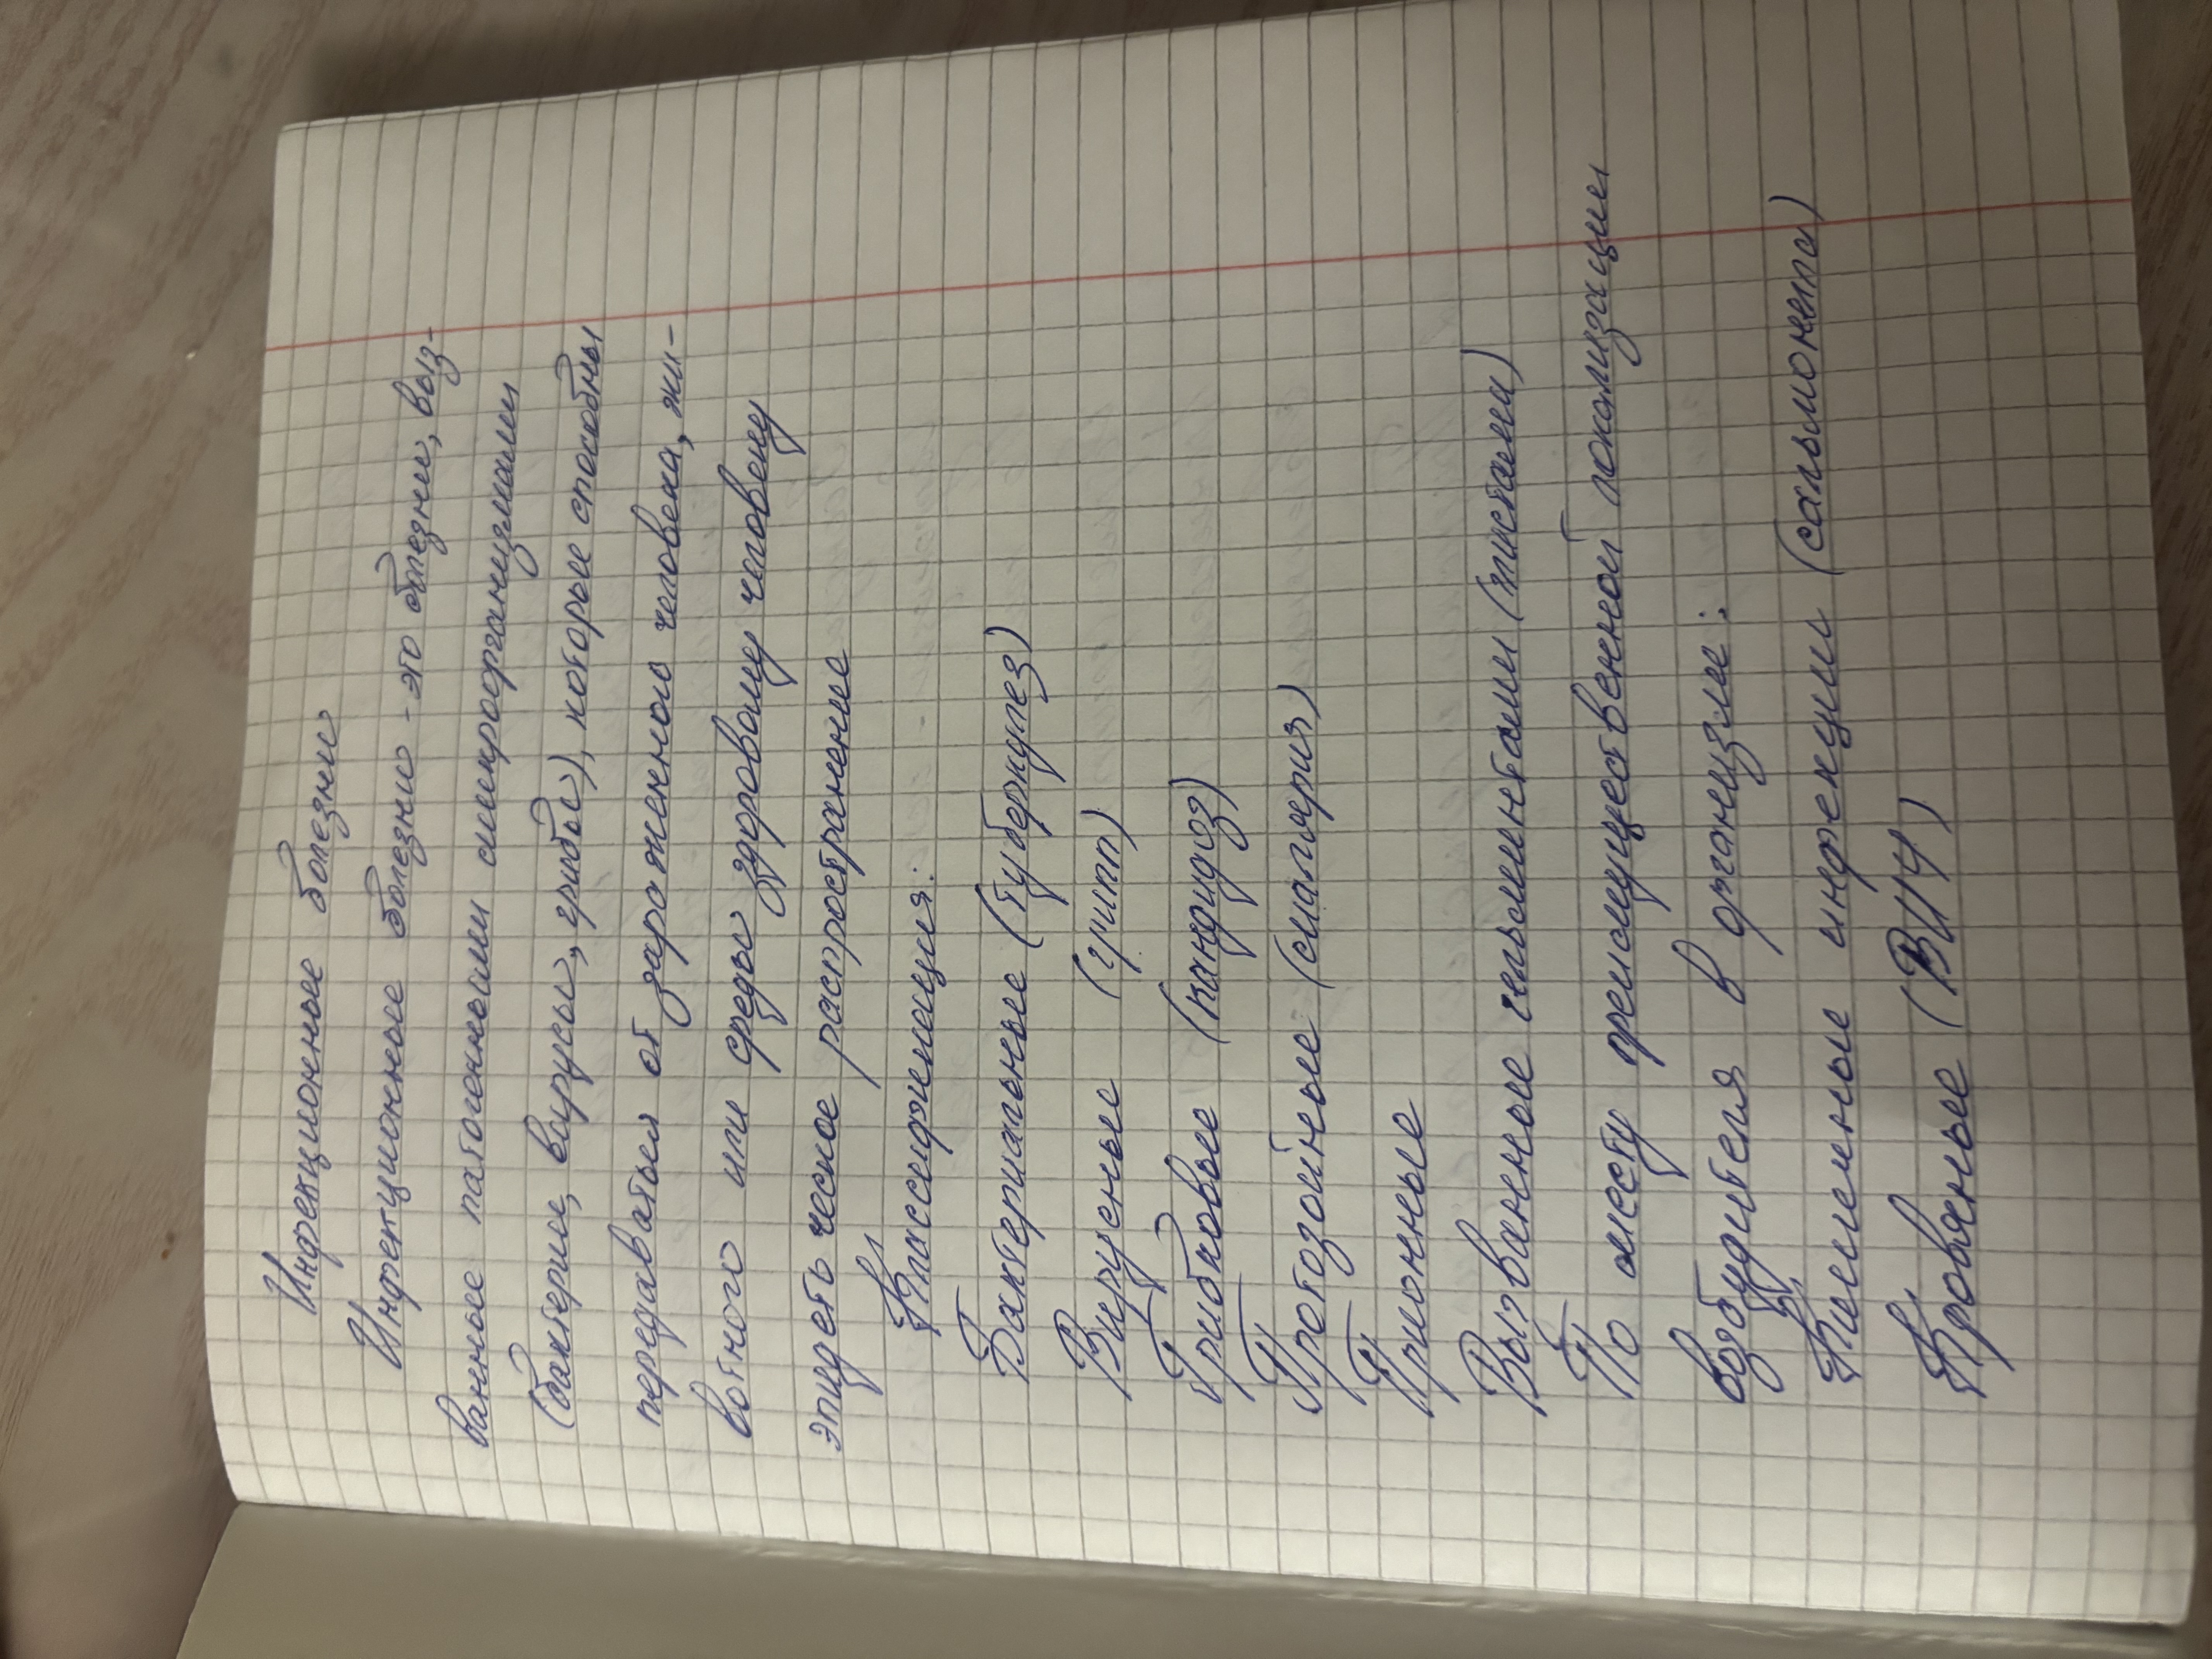 Инфекционные болезни
Инфекционные болезни - это болезни, выз-
ванные патогенными микроорганизмами
(бактерии, вирусы, грибы), которые способны
передаваться от зараженного человека, жи-
вотного или среды здоровому человеку
эпидемическое распространение
Классификация:
Бактериальные (туберкулез)
Вирусные (грипп)
Грибковые (кандидоз)
Протозойные (малярия)
Прионные
Вызванные гельминтами (глистами)
По месту преимущественной локализации
возбудителя в организме:
Кишечные инфекции (сальмонелла)
Кровяные (ВИЧ)